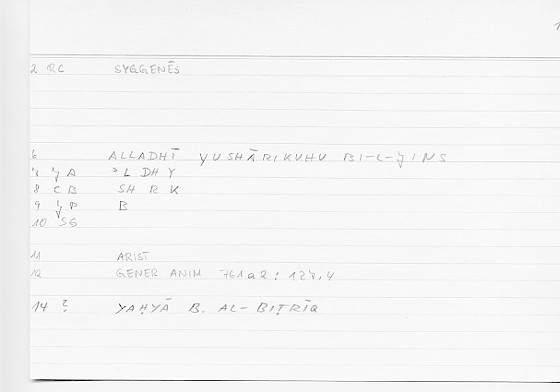 2 RC SYGGENĒS
6 ALLADHĪ YUSHĀRIKUHU BI-L-JINS
7 JA ʾL DHY
8 CB SH R K
9 JP B
10 SG
11 ARIST
12 GENER ANIM 761a2 : 127,4
14 ? YAḤYĀ B. AL-BIṬRĪQ